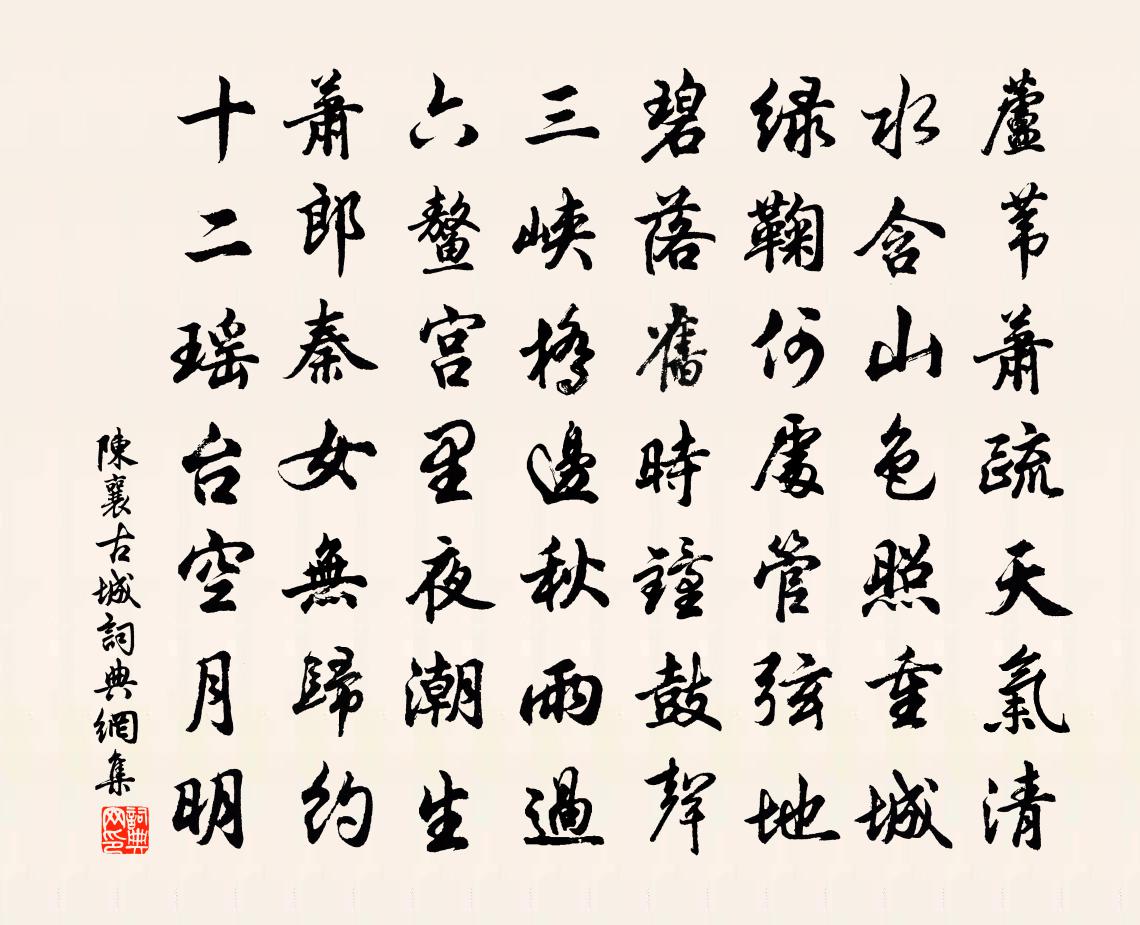 蘆苇蕭疏天氣清
水含山色照重城
緑鞠何處管弦地
碧落舊時鐘鼓聲
三峽橋邊秋雨過
六鼇宮里夜潮生
蕭郎秦女無歸約
十二瑶台空月明
陳襄古城詞典網集
詞典网印